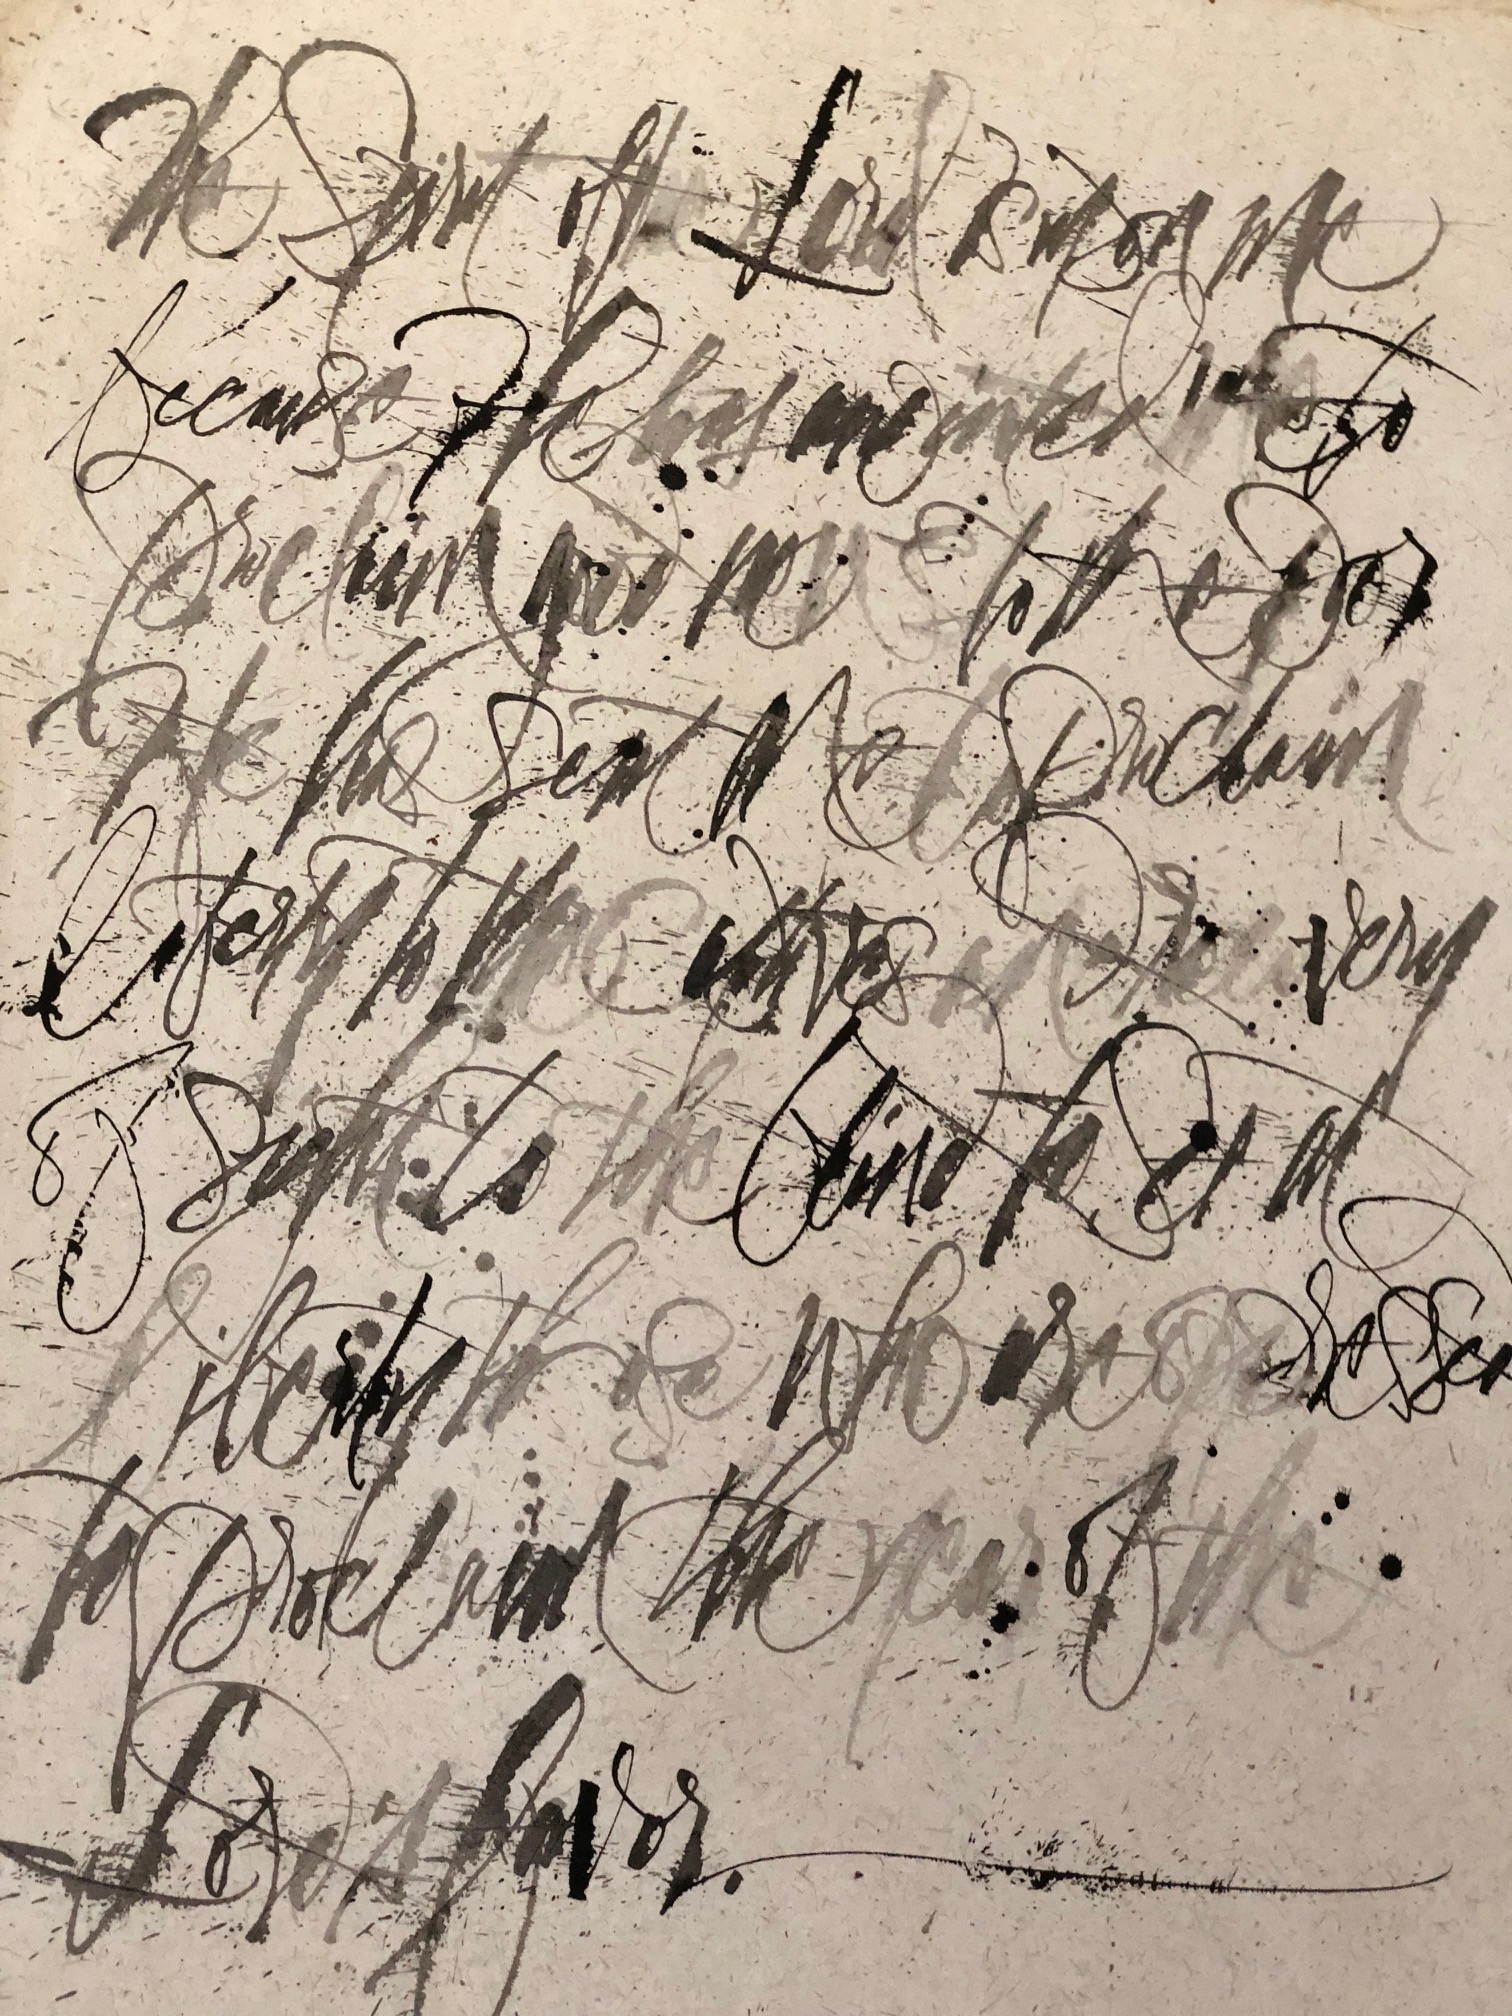 The Spirit of the Lord is upon me
because He has anointed me to
Proclaim good news to the Poor
He has sent Me to Proclaim
Liberty to the captives and Recovery
of Sight to the blind to Set at
liberty those who are oppressed
to proclaim the year of the
Lord's favor.